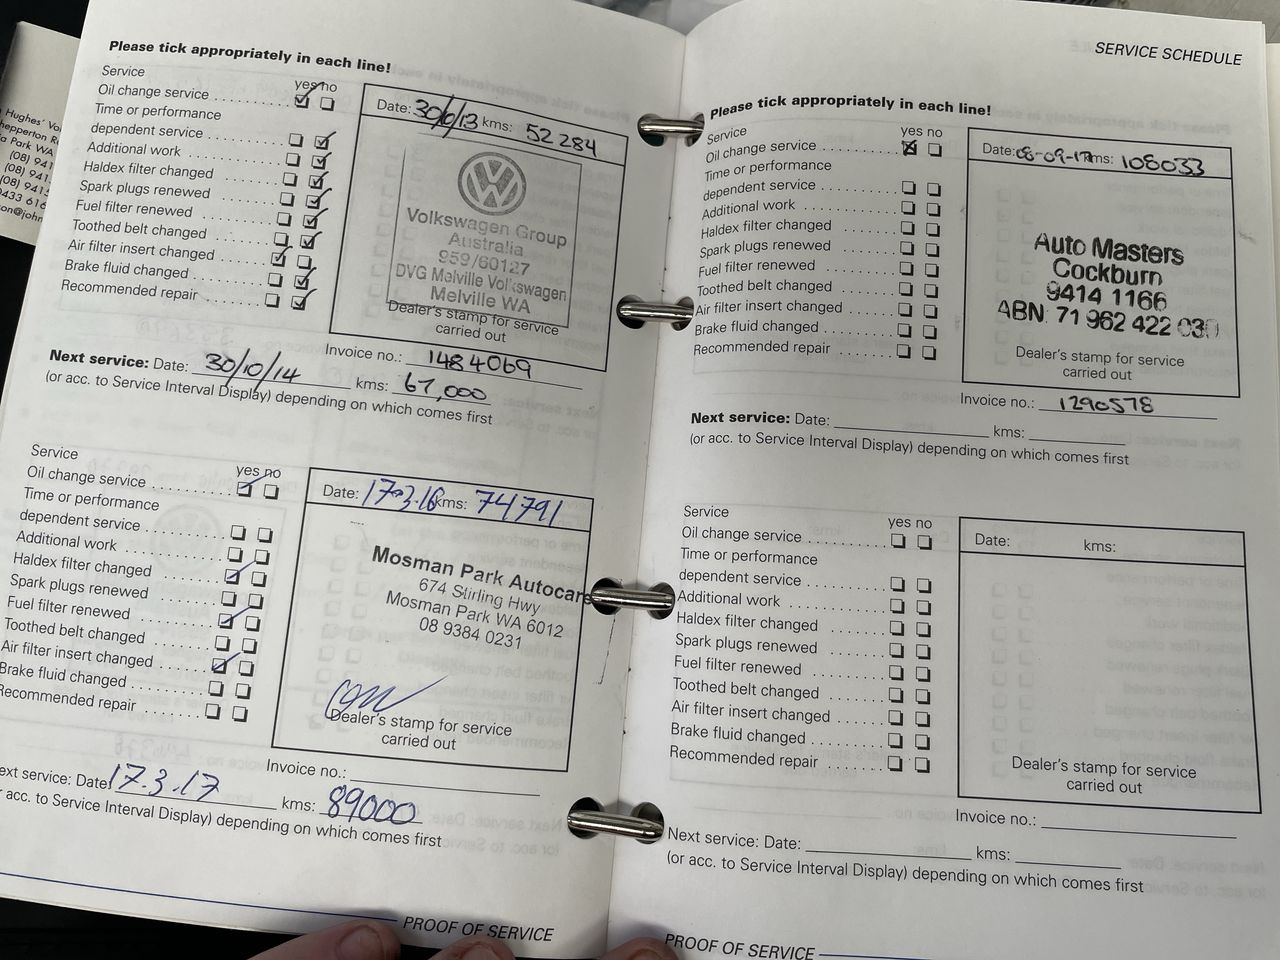 Hughes' Vo
hepperton R
a Park WA
(08) 941
(08) 941
(08) 941
0433 616
on@john
Please tick appropriately in each line!
Service
yes no
Oil change service
Time or performance
dependent service
Additional work
Haldex filter changed
Spark plugs renewed
Fuel filter renewed
Toothed belt changed
Air filter insert changed
Brake fluid changed
Recommended repair
Date: 30/6/13 kms: 52 284
Volkswagen Group
Australia
959/60127
DVG Melville Volkswagen
Melville WA
Dealer's stamp for service
carried out
Invoice no.: 1484069
Next service: Date: 30/10/14 kms: 67,000
(or acc. to Service Interval Display) depending on which comes first
Service
yes no
Oil change service
Time or performance
dependent service
Additional work
Haldex filter changed
Spark plugs renewed
Fuel filter renewed
Toothed belt changed
Air filter insert changed
Brake fluid changed
Recommended repair
Date: 17.3.16 kms: 74791
Mosman Park Autocare
674 Stirling Hwy
Mosman Park WA 6012
08 9384 0231
Dealer's stamp for service
carried out
Invoice no.:
ext service: Date: 17.3.17 kms: 89000
acc. to Service Interval Display) depending on which comes first
PROOF OF SERVICE
SERVICE SCHEDULE
Please tick appropriately in each line!
Service
yes no
Oil change service
Time or performance
dependent service
Additional work
Haldex filter changed
Spark plugs renewed
Fuel filter renewed
Toothed belt changed
Air filter insert changed
Brake fluid changed
Recommended repair
Date: 08-09-17 kms: 108033
Auto Masters
Cockburn
9414 1166
ABN: 71 962 422 030
Dealer's stamp for service
carried out
Invoice no.: 1290578
Next service: Date: kms:
(or acc. to Service Interval Display) depending on which comes first
Service
yes no
Oil change service
Time or performance
dependent service
Additional work
Haldex filter changed
Spark plugs renewed
Fuel filter renewed
Toothed belt changed
Air filter insert changed
Brake fluid changed
Recommended repair
Date: kms:
Dealer's stamp for service
carried out
Invoice no.:
Next service: Date: kms:
(or acc. to Service Interval Display) depending on which comes first
PROOF OF SERVICE